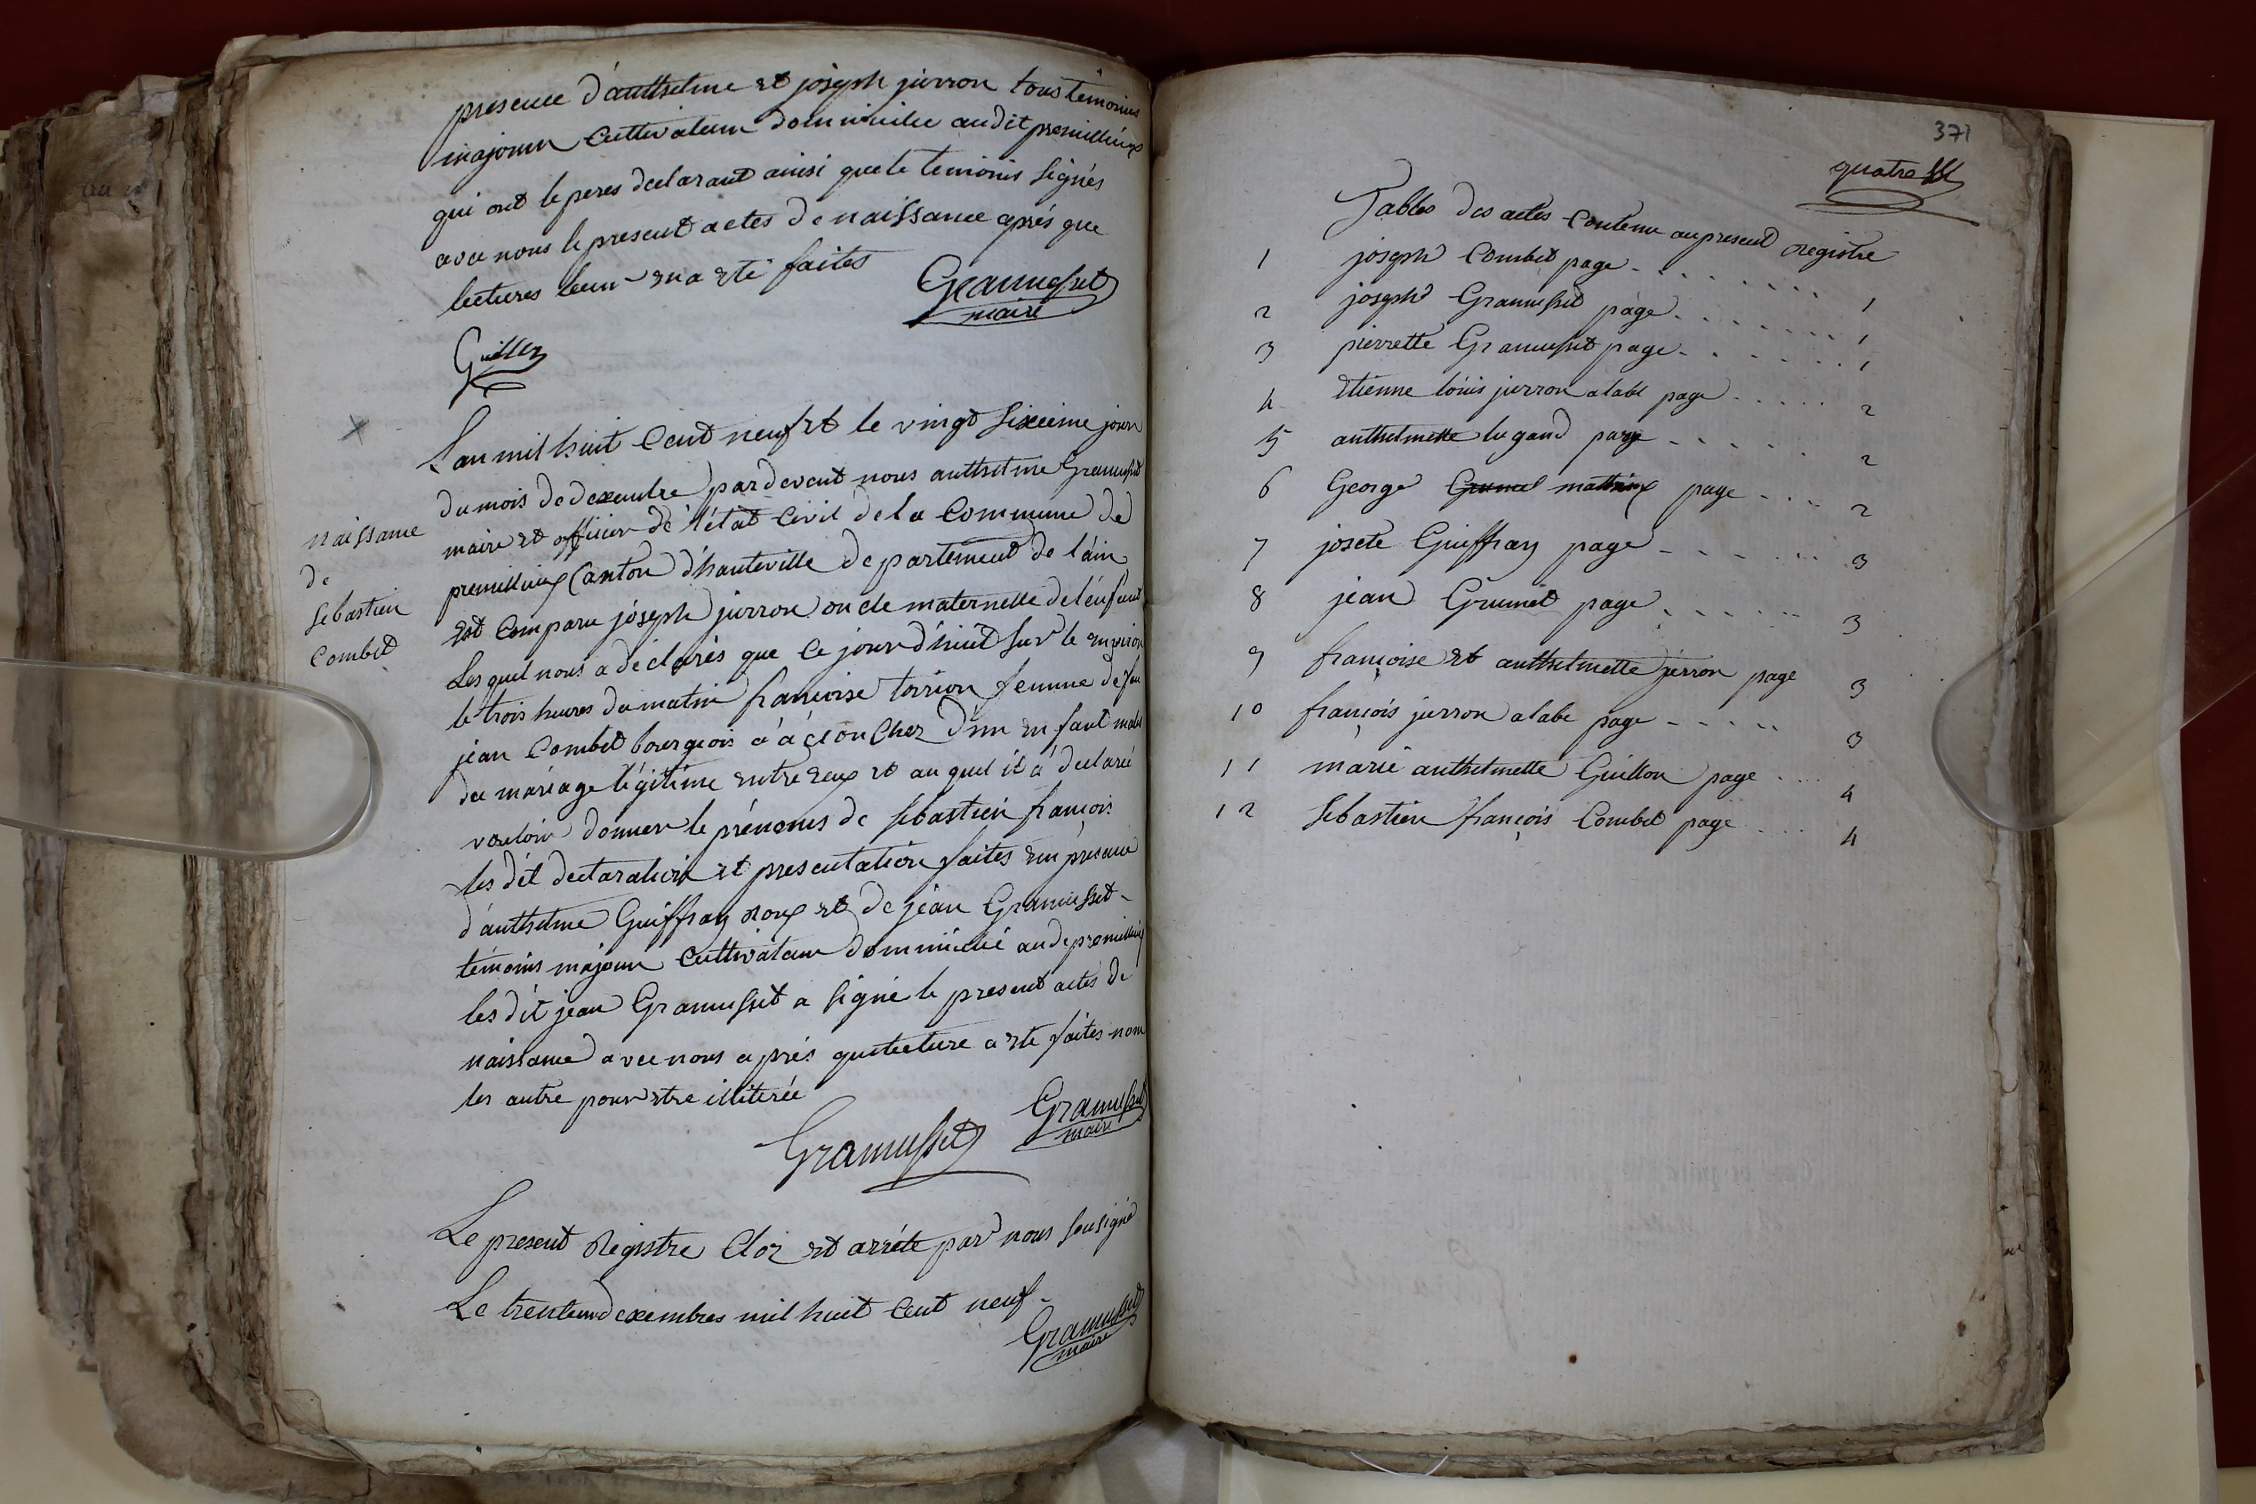 presence d'anthelme et joseph jurron tous témoins
majour cultivateur domicilie audit premillieux
qui ont le peres declarant ainsi que le temoins signés
avec nous le present actes de naissance aprés que
lectures leur en a eté faites
Gramusset
maire
Guillon
L'an mil huit cent neuf et le vingt sixieme jour
du mois de dexembre pardevant nous anthelme Gramusset
maire et officier de l'état civil de la commune de
premillieux canton d'hauteville departement de l'ain
est comparu joseph jurron oncle maternelle de l'enfant
Lesquel nous a déclarés que ce jourd'huit sur le environ
le trois heures du matin francoise torrion femme de feu
jean Combet bourgeois a acçoucher d'un enfant male
du mariage légitime entre eux et au quel il a déclaré
vouloir donner le prénoms de sebastien françois
les dit declaration et presentation faites en présence
d'anthelme Guiffray roux et de jean Gramusset
témoins majour cultivateur dommicilié aude premillieux
les dit jean Gramusset a signé le present actes de
naissance avec nous aprés que lecture a eté faites non
les autre pour etre illiterée
Gramusset
Gramusset
maire
naissance
de
sebastien
Combet
Le present Registre Cloz et arrété par nous sousigné
Le trenteun dexembres mil huit cent neuf
Gramusset
maire
371
quatre
Tables des actes contenu au present registre
1 joseph Combet page 1
2 joseph Gramusset page 1
3 pierrette Gramusset page 1
4 étienne loüis jurron alabe page 2
5 anthelmette lugand page 2
6 George Grumet mathieux page 2
7 josete Guiffray page 3
8 jean Grumet page 3
9 françoise et anthelmette jurron page 3
10 françois jurron alabe page 3
11 marie anthelmette Guillon page 4
12 sebastien françois Combet page 4